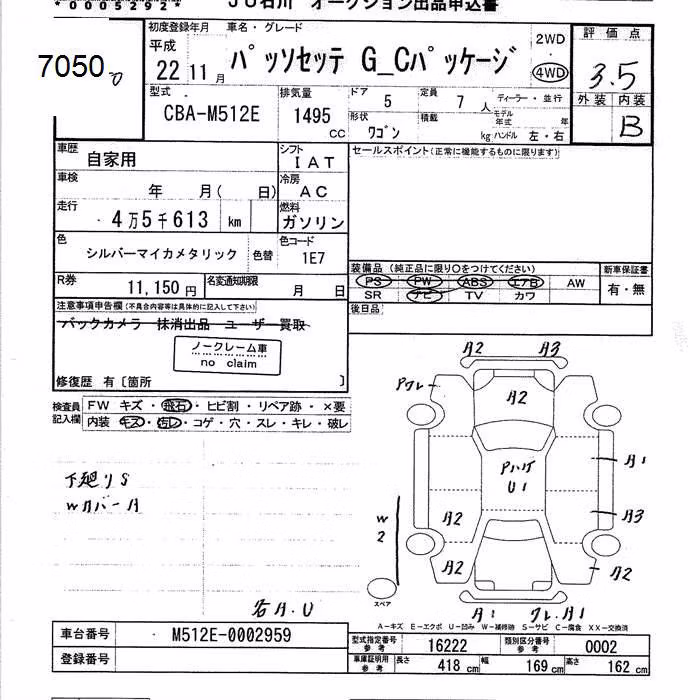 *0005292* JU石川 オークション出品申込書
7050
初度登録年月 車名・グレード 評価点
平成 22年 11月 パッソセッテ G_Cパッケージ 2WD 4WD 3.5
型式 排気量 ドア 5 定員 7人 ディーラー・並行 外装 内装
CBA-M512E 1495cc 形状 ワゴン 積載 kg モデル年式 年 ハンドル 左・右 B
車歴 自家用 シフト IAT セールスポイント(正常に機能するものに限ります)
車検 年 月( 日) 冷房 AC
走行 4万5千613 km 燃料 ガソリン
色 シルバーマイカメタリック 色替 色コード 1E7
装備品(純正品に限り○をつけてください) 新車保証書
R券 11,150円 名変通知期限 月 日 PS PW ABS エアB AW 有・無
SR ナビ TV カワ
注意事項申告欄(不具合内容等は具体的に記入して下さい) 後日品
バックカメラ 抹消出品 ユーザー買取
ノークレーム車
no claim
修復歴 有〔箇所 〕
検査員記入欄 FW キズ・飛石・ヒビ割・リペア跡・×要
内装 キズ・汚レ・コゲ・穴・スレ・キレ・破レ
A2 A3
Pワレ A2
Pハゲ
U1
A1
下廻りS
Wカバー A
W2 A2 A3
A2 A2
スペア
A1 ワレ.A1
A-キズ E-エクボ U-凹み W-補修跡 S-サビ C-腐食 XX-交換済
車台番号 M512E-0002959
型式指定番号 参考 16222 類別区分番号 参考 0002
登録番号
車庫証明用 参考 長さ 418cm 幅 169cm 高さ 162cm